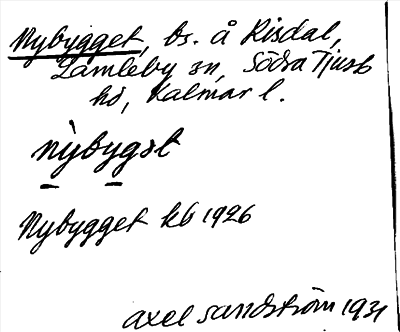 Nybygget, bs. å Risdal,
Gamleby sn, Södra Tjust
hd, Kalmar l.
nỳbygət
Nybygget kb 1926
Axel Sandström 1931